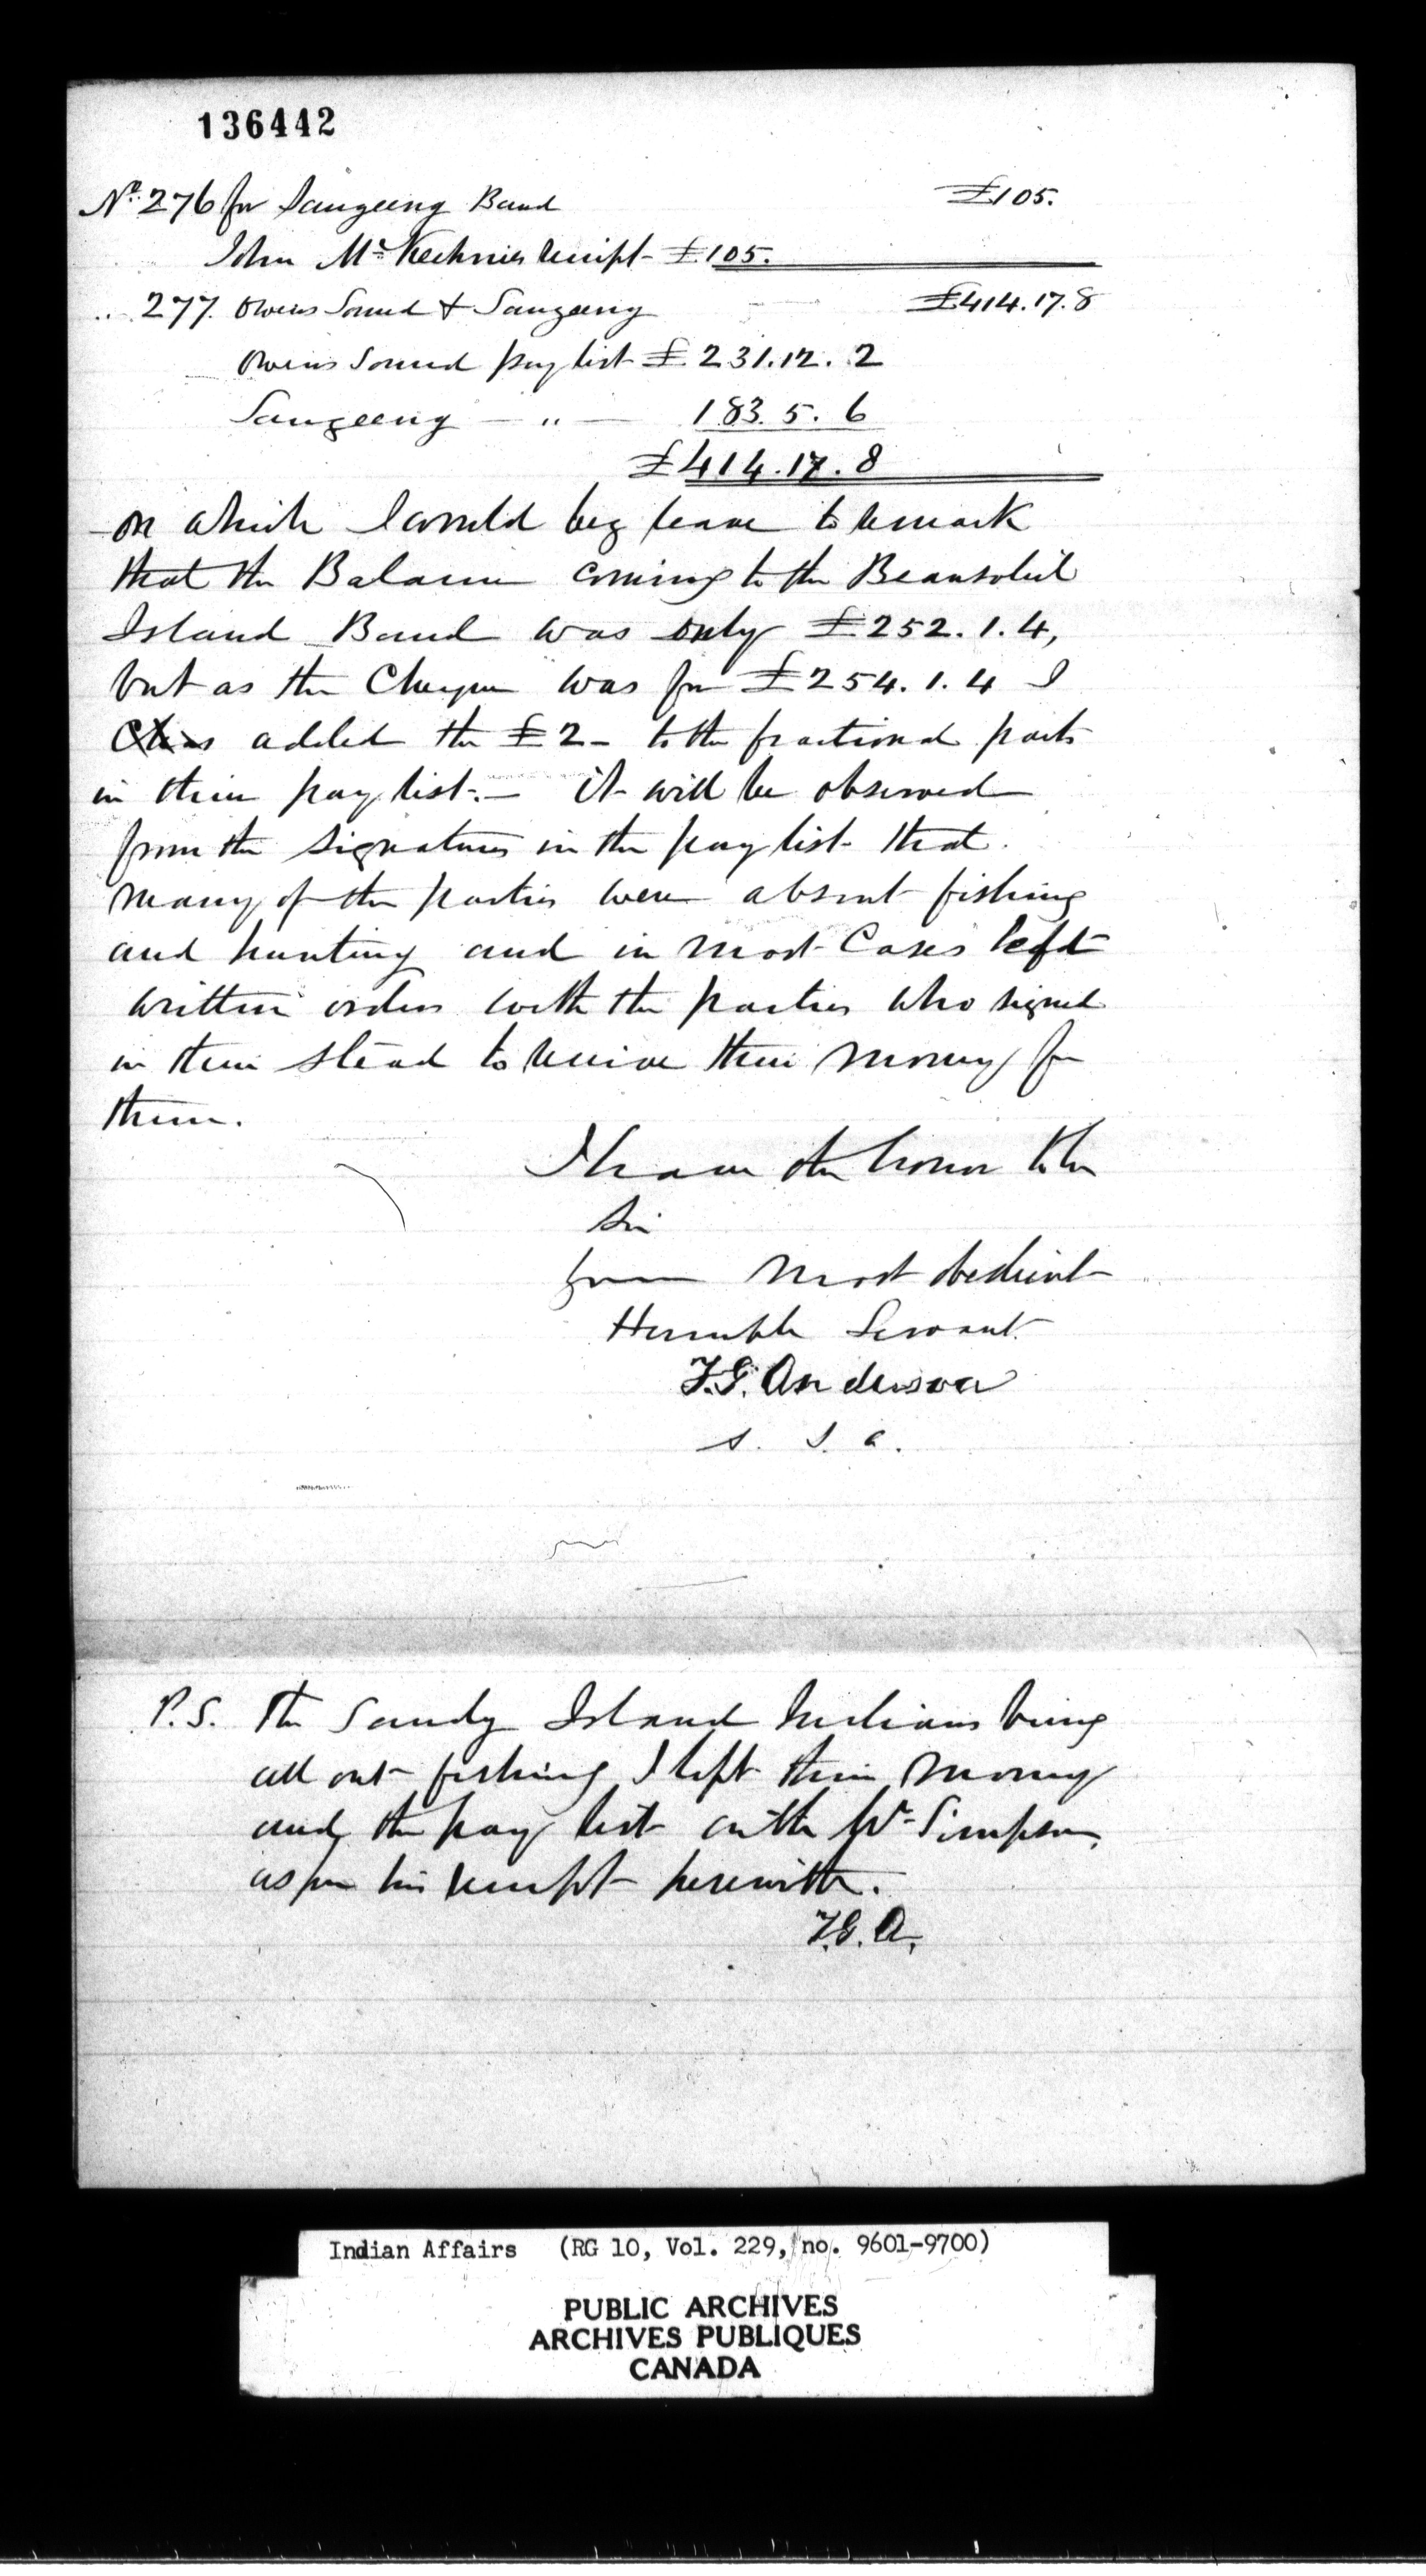 136442
No. 276 for Saugeeng Band £105.
John McKechnies receipt - £105.
" 277. Owens Sound & Saugeeng £414.17.8
Owens Sound pay list £231.12.2
Saugeeng - " - 183.5.6
£414.17.8
on which I would beg leave to remark
that the Balance coming to the Beausoliel
Island Band was only £252.1.4,
but as the Cheque was for £254.1.4 I
added the £2 - to the fractional parts
in their pay list. - it will be observed
from the signatures in the pay list that
many of the parties were absent fishing
and hunting and in most Cases left
written orders with the parties who signed
in their stead to receive their money for
them.
I have the honor to be
Sir
your most obedient
Humble Servant
T.G. Anderson
S. I. A.
P.S. The Sandy Island Indians being
all out fishing I left their money
and the pay list with Mr Simpson,
as per his receipt herewith.
T.G.A.
Indian Affairs (RG 10, Vol. 229, no. 9601-9700)
PUBLIC ARCHIVES
ARCHIVES PUBLIQUES
CANADA